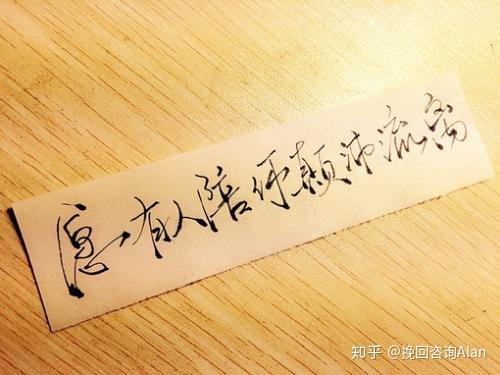 愿有人陪你颠沛流离
知乎 @挽回咨询Alan